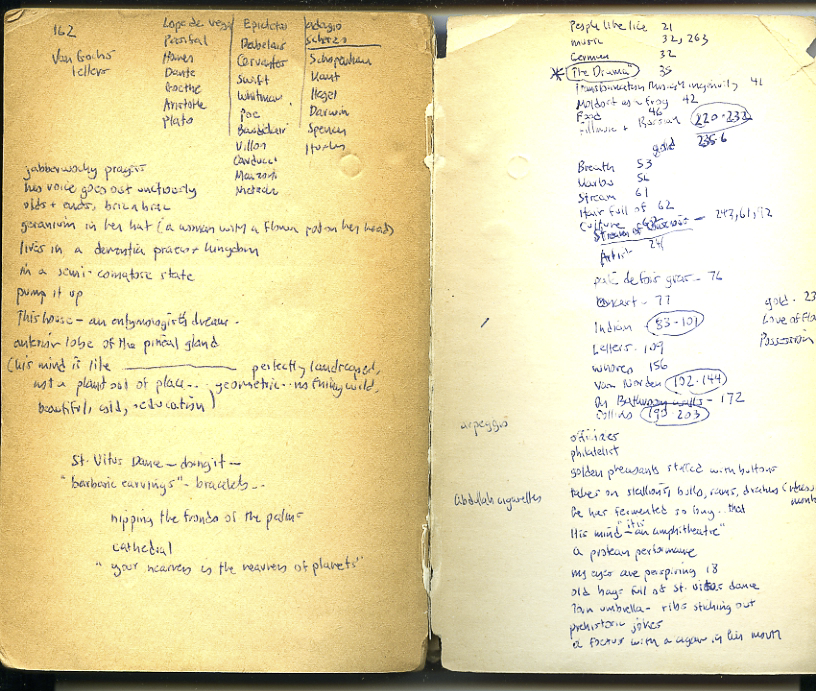 162
Van Goghs
letters
Lope de Vega
Parsifal
Dante
Goethe
Aristotle
Plato
Epictetus
Rabelais
Cervantes
Swift
Whitman
Poe
Baudelair
Villon
Carducci
Manzoni
Nietzsche
adagio
scherzo
Schopenhau
Kant
Hegel
Darwin
Spencer
Huxley
jabberwocky prayers
his voice goes out unctuously
odds + ends, bric a brac
geranium in her hat (a woman with a flower pot on her head)
lives in a dementia praecox kingdom
in a semi-comatose state
pump it up
This house - an entymologist's dream -
anterior lobe of the pineal gland
(his mind is like perfectly landscaped,
not a plant out of place.. geometric.. nothing wild,
beautiful, cold, education)
St. Vitus Dance - doing it -
"barbaric carvings" - bracelets -
nipping the fronds of the palms
cathedral
"your nearness is the nearness of planets"
People like lice 21
music 32, 263
German 32
* "The Drama" 35
Transformation through ingenuity 41
Moldorf as a frog 42
Food 46
Fillmore + Russian 220-232
gold 235-6
Breath 53
Words 56
Stream 61
Hair full of 62
Culture
Stream of - 243, 61, 72
Artist 24
paté de fois gras - 76
Concert - 77
Indian 83-101
Letters - 109
whores 156
Van Norden 102-144
On Bathroom walls - 172
Collins 190-203
gold - 23
Love of Flo
Possession
arpeggio
philatelist
golden pheasants stuffed with buttons
Abdullah cigarettes
takes on stallions, bulls, rams, drakes
he has fermented so long.. that
His mind - "it is an amphitheatre"
a protean performance
my eyes are perspiring 18
old bags full of St. Vitus dance
Torn umbrella - ribs sticking out
prehistoric jokes
a foetus with a cigar in his mouth